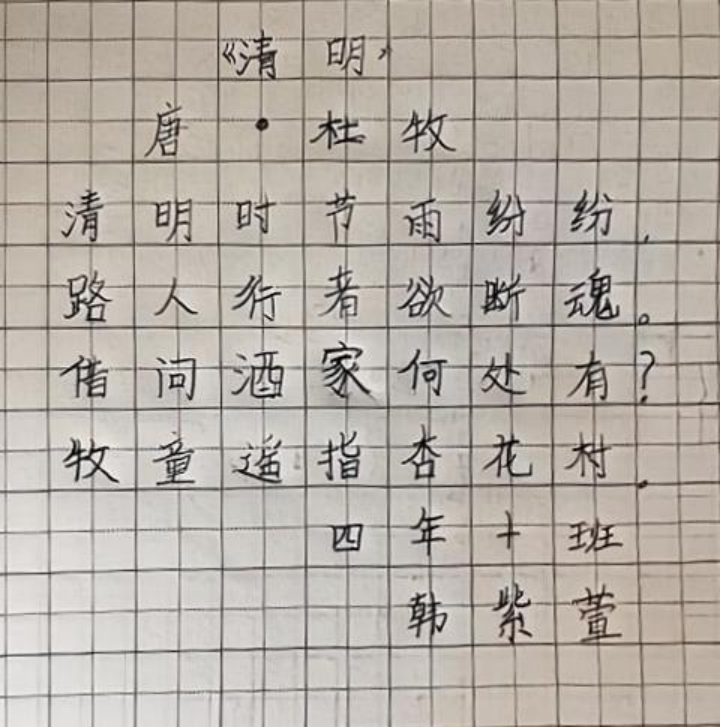 《清明》
唐·杜牧
清明时节雨纷纷,
路人行者欲断魂。
借问酒家何处有?
牧童遥指杏花村.
四年十班
韩紫萱